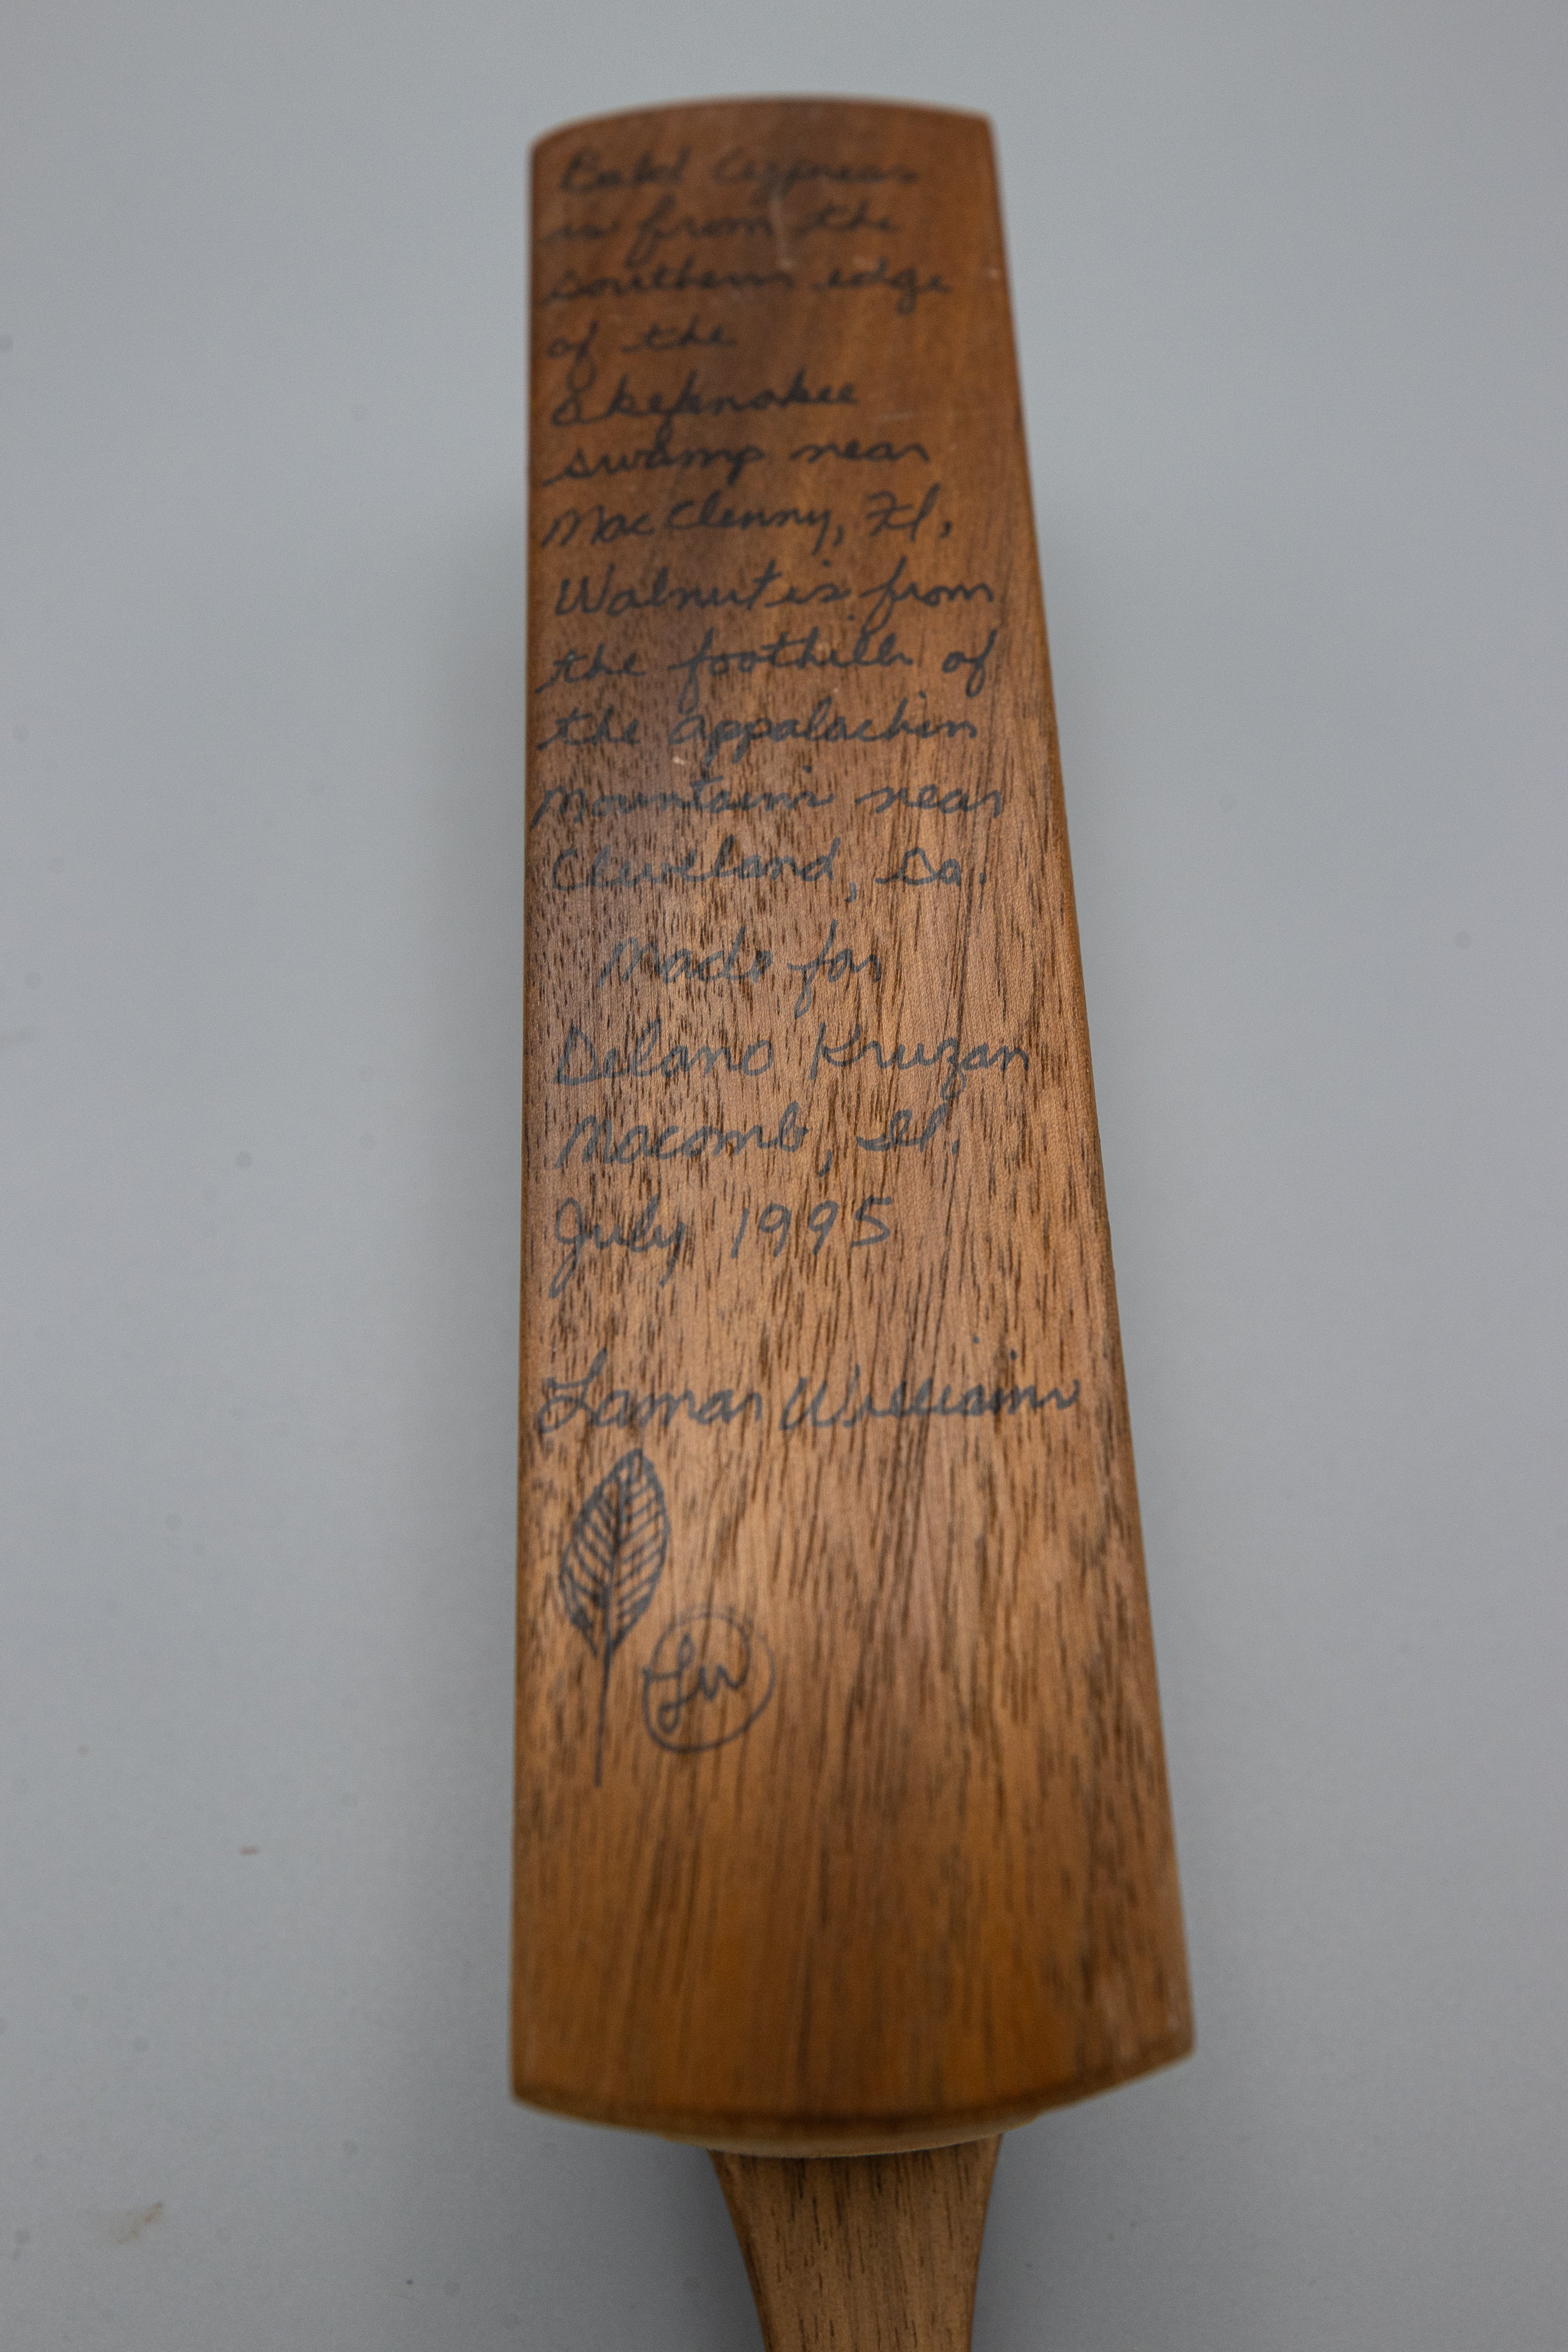 Bald Cypress
is from the
southern edge
of the
Okefenokee
swamp near
MacClenny, Fl,
Walnut is from
the foothills of
the appalachin
Mountains near
Cleveland, Ga.
Made for
Delano Kruzan
Macomb, Il.
July 1995
Lamar Williams
LW